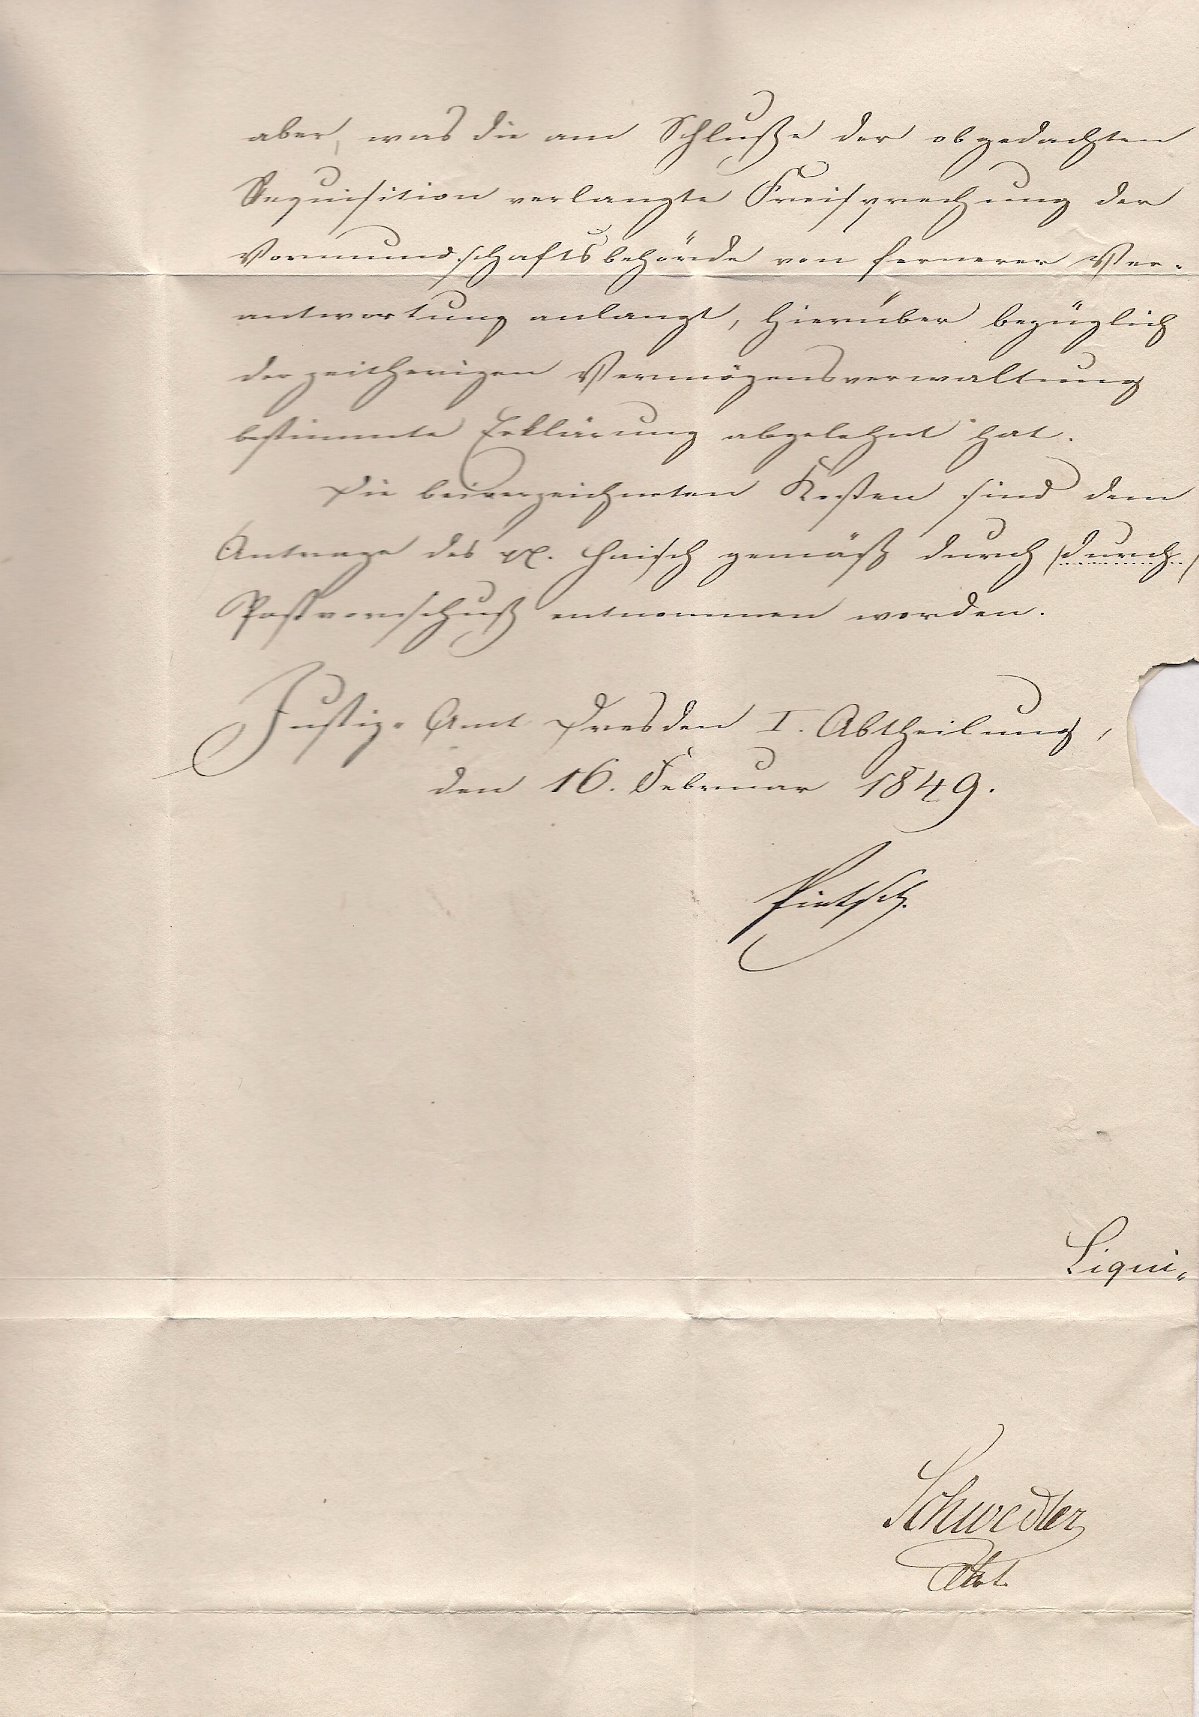 aber, was die am Schluße der obgedachten
Requisition verlangte Freisprechung der
Vormundschaftsbehörde von fernerer Ver-
antwortung anlangt, hierüber bezüglich
der zeitherigen Vermögensverwaltung
bestimmte Erklärung abgelehnt hat.
Die beiverzeichneten Kosten sind dem
Antrage des pp. Haisch gemäß durch /durch/
Postvorschuß entnommen worden.
Justiz-Amt Dresden I. Abtheilung,
den 16. Februar 1849.
Pietsch.
Liqui-
Schwedler